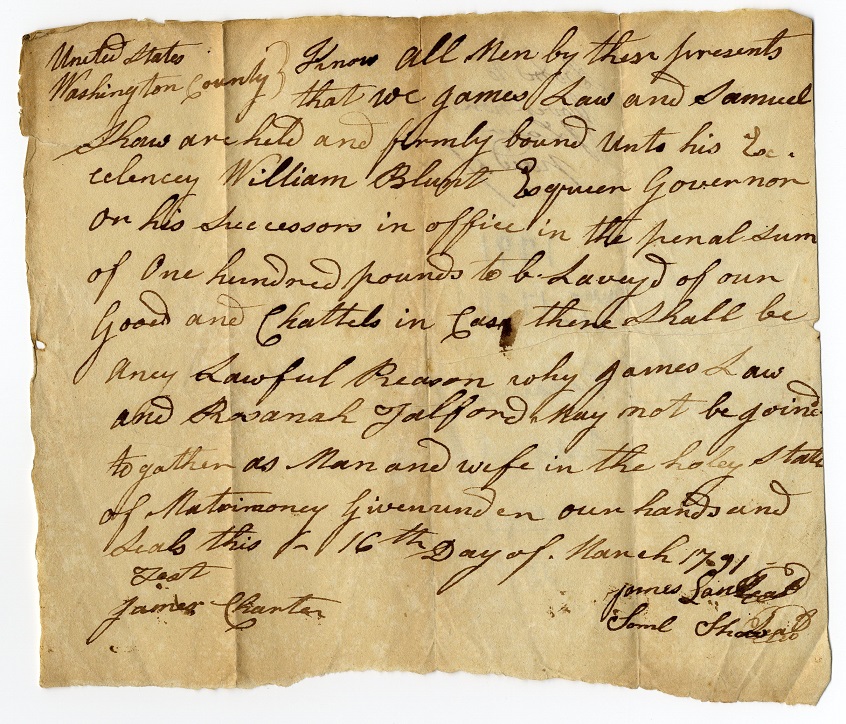 United States } Know all Men by these presents
Washington County } that we James Law and Samuel
Shaw are held and firmly bound unto his Ex-
celencey William Blunt Esqueer Governor
Or his Successors in office in the penal sum
of One hundred pounds to be Laveyd of our
Good and Chattels in Case there Shall be
Aney Lawful Reason why James Law
and Rosanah Talford May not be goind
together as Man and wife in the holey State
of Matrimoney Given under our hands and
Seals this 16th Day of March 1791
Test
James Charter
James Law Seal
Saml Shaw Seal